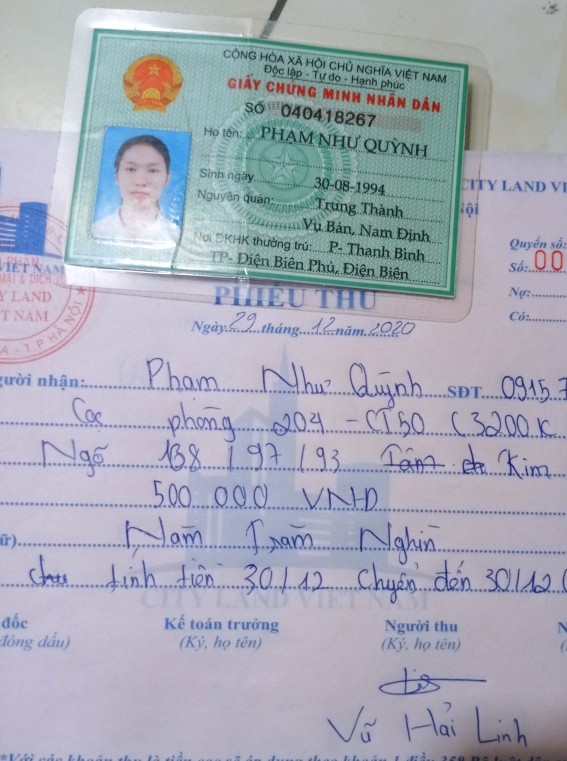 CỘNG HÒA XÃ HỘI CHỦ NGHĨA VIỆT NAM
Độc lập - Tự do - Hạnh phúc
GIẤY CHỨNG MINH NHÂN DÂN
SỐ 040418267
Họ tên: PHẠM NHƯ QUỲNH
Sinh ngày 30-08-1994
Nguyên quán: Trung Thành
Vụ Bản, Nam Định
Nơi ĐKHK thường trú: P- Thanh Bình
TP- Điện Biên Phủ, Điện Biên
CITY LAND VI
Quyển số:
VIỆT NAM
Số: 00
MẠI & DỊCH
Y LAND
Nợ:
T NAM
PHIẾU THU
Có:
Ngày 29 tháng 12 năm 2020
gười nhận: Phạm Như Quỳnh SĐT 0915
Cọc phòng 204 - CT50 (3200K
Ngõ 138 / 97 / 93 Kim
500 000 VNĐ
ữ) Năm Trăm Nghìn
tính tiền 30/12 Chuyển đến 30/12
CITY LAND VIETNAM
đốc Kế toán trưởng Người thu
đóng dấu) (Ký, họ tên) (Ký, họ tên)
Vũ Hải Linh